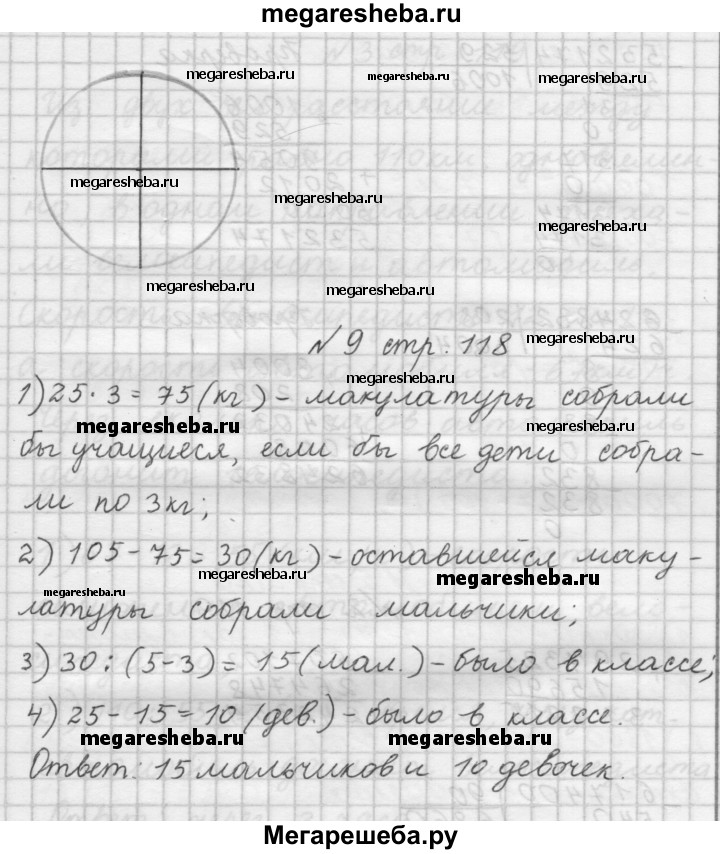 megaresheba.ru
megaresheba.ru megaresheba.ru megaresheba.ru
megaresheba.ru
megaresheba.ru
megaresheba.ru
megaresheba.ru megaresheba.ru
№ 9 стр. 118
megaresheba.ru
megaresheba.ru
1) 25 · 3 = 75 (кг) - макулатуры собрали
megaresheba.ru megaresheba.ru
бы учащиеся, если бы все дети собра-
ли по 3кг;
2) 105 - 75 = 30 (кг) - оставшейся маку-
megaresheba.ru megaresheba.ru
megaresheba.ru
латуры собрали мальчики;
3) 30 : (5-3) = 15 (мал.) - было в классе;
4) 25 - 15 = 10 (дев.) - было в классе.
megaresheba.ru megaresheba.ru
Ответ: 15 мальчиков и 10 девочек.
Мегарешеба.ру